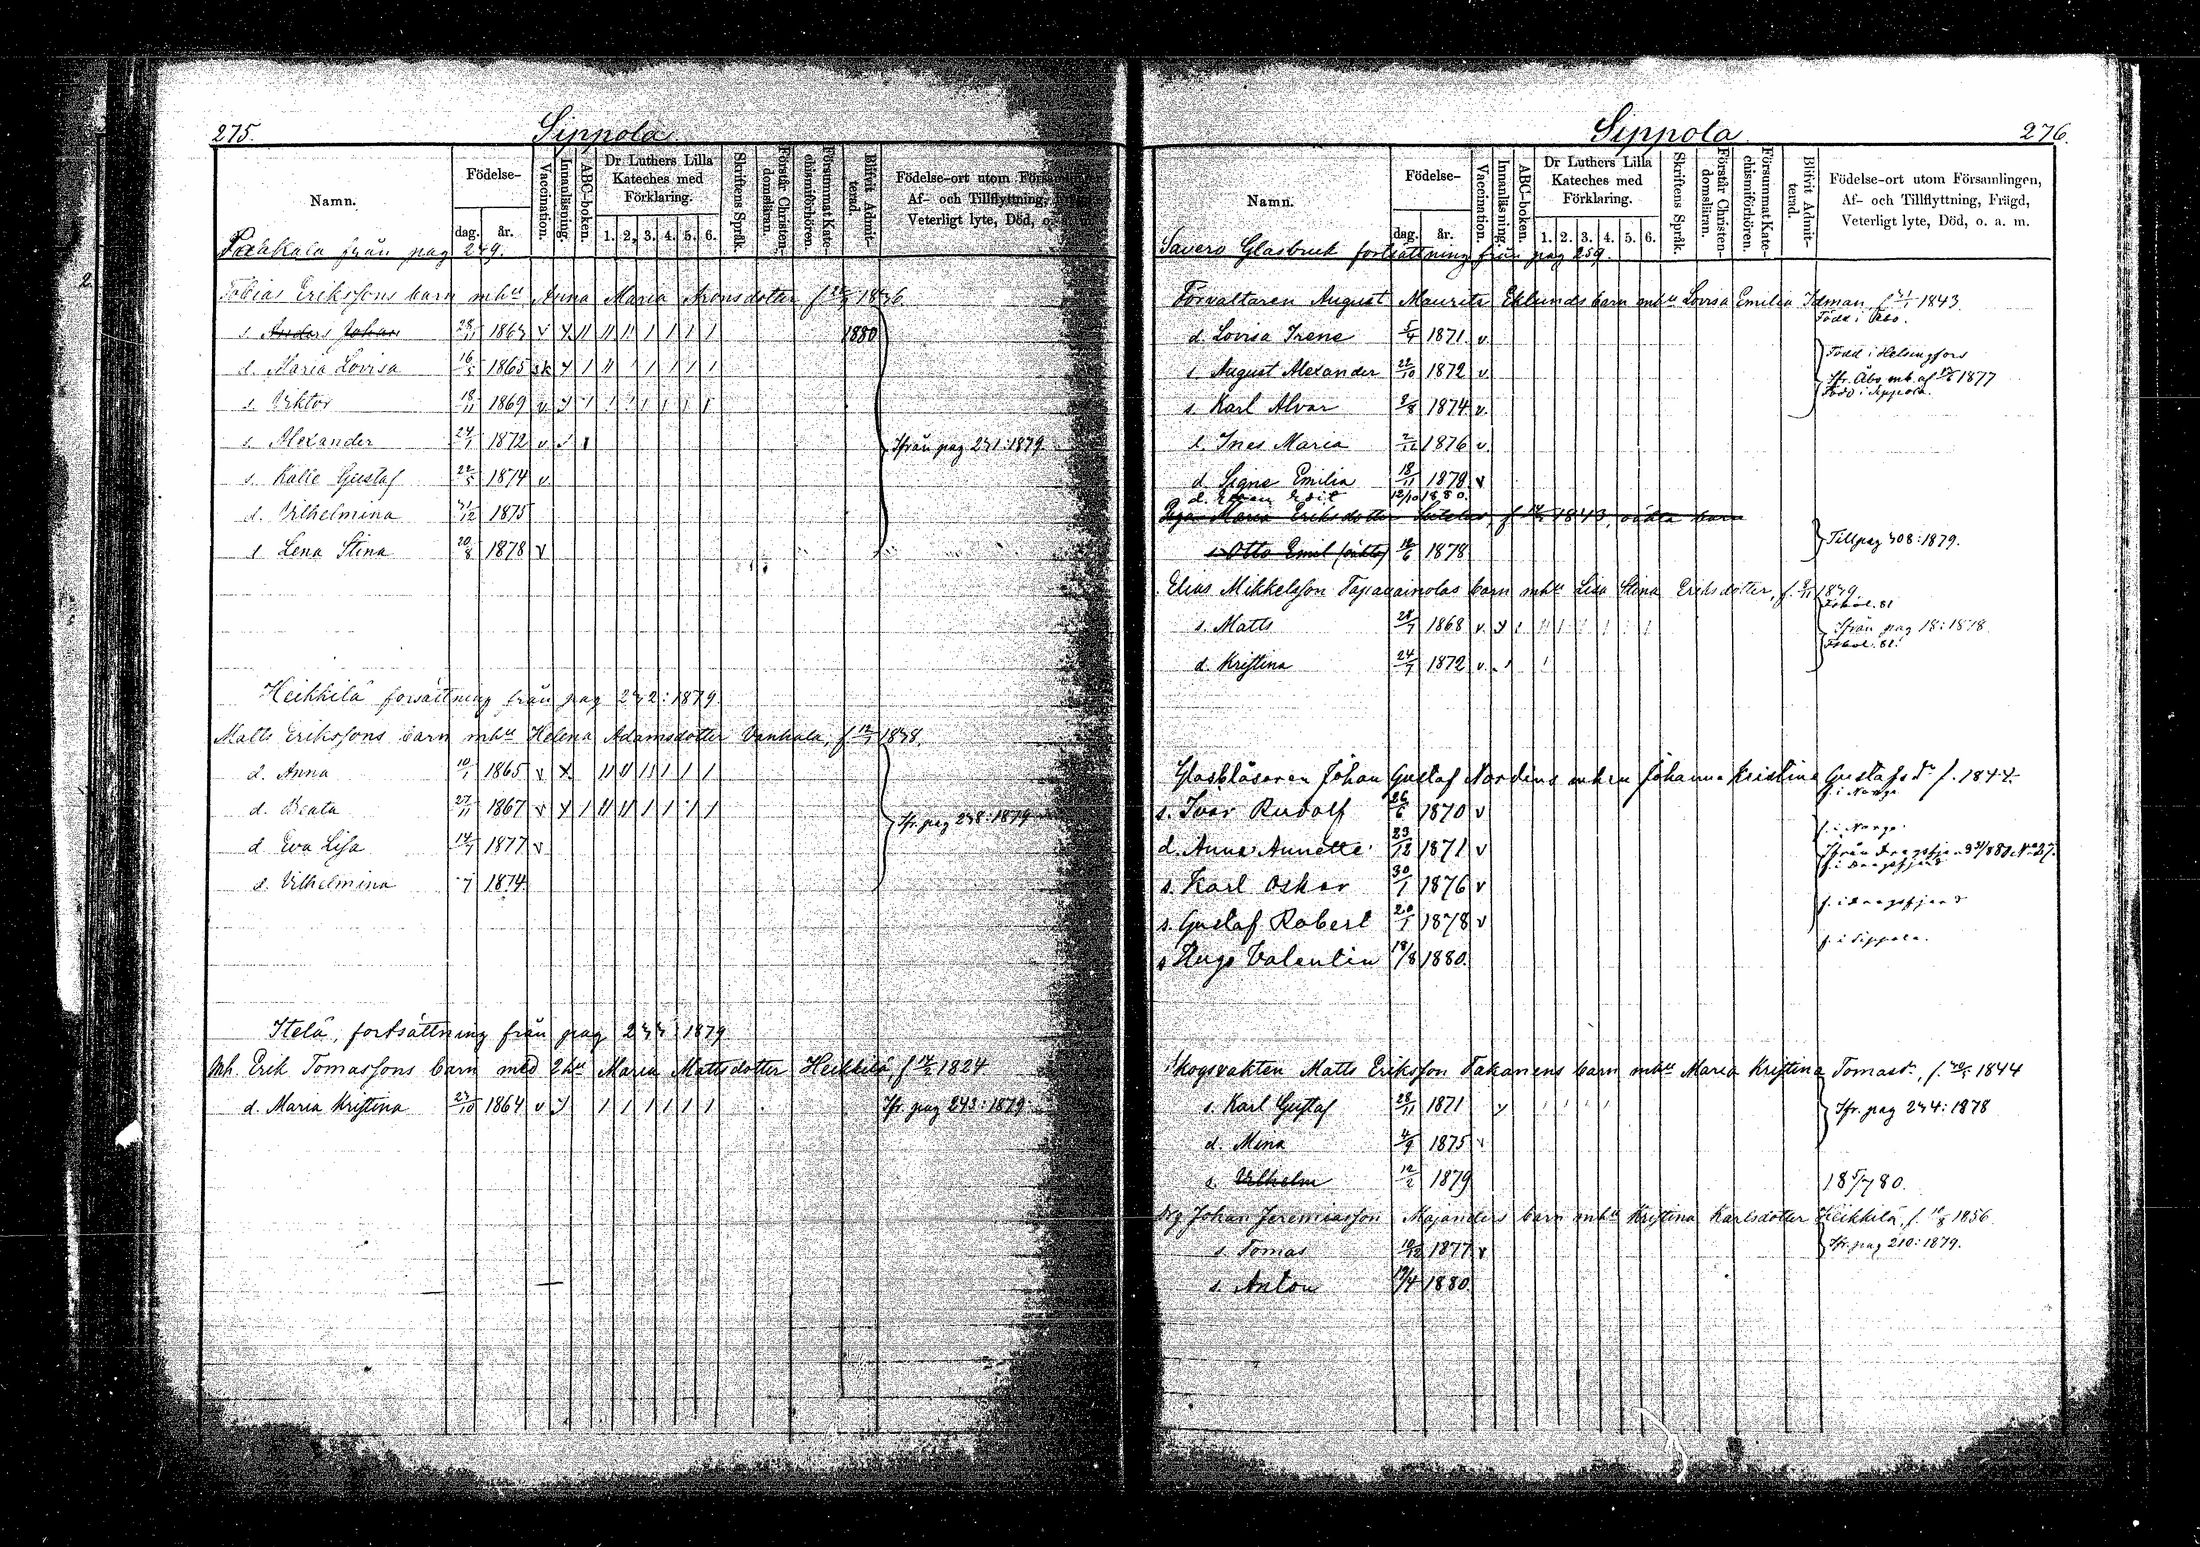 275.
Sippola
Namn.
Födelse-
dag.
år.
Vaccination.
Innanläsning.
ABC-boken.
Dr Luthers Lilla
Kateches med
Förklaring.
1. 2. 3. 4. 5. 6.
Skriftens Språk.
Förstår Christen-
domsläran.
Försummat Kate-
chismiförhören.
Blifvit Admit-
terad.
Födelse-ort utom
Af- och Tillflyttning,
Veterligt lyte, Död, o.
från pag 249.
Tobias Erikssons barn mhu Anna Maria Aronsdotter
s. Anders Johan 1863 v 1880
d. Maria Lovisa 16/5 1865 sk
s. Viktor 18/11 1869 v
s. Alexander 24/1 1872 v
Ifrån pag 231:1879.
s. Kalle Gustaf 22/5 1874 v.
d. Vilhelmina 31/12 1875
Lena Stina 20/8 1878 v
Heikkilä forsättning från pag 232:1879.
Matts Erikssons barn mhu Helena Adamsdotter Vanhala, f. 12/1 1838.
d. Anna 10/1 1865 v x
d. Beata 27/11 1867 v
Ifr. pag 238:1879
d Eva Lisa 14/7 1877 v
d. Vilhelmina 1874
Itelä, fortsättning från pag 233:1879
Mh Erik Tomassons barn med 2hu Maria Mattsdotter Heikkilä, f 14/2 1824
d. Maria Kristina 23/10 1864 v
Ifr. pag 243:1879
Sippola
276.
Namn.
Födelse-
dag.
år.
Vaccination.
Innanläsning.
ABC-boken.
Dr Luthers Lilla
Kateches med
Förklaring.
1. 2. 3. 4. 5. 6.
Skriftens Språk.
Förstår Christen-
domsläran.
Försummat Kate-
chismiförhören.
Blifvit Admit-
terad.
Födelse-ort utom Församlingen,
Af- och Tillflyttning, Frägd,
Veterligt lyte, Död, o. a. m.
Savero Glasbruk fortsättning från pag 259.
Förvaltaren August Mauritz Eklunds barn mhu Lovisa Emilia Idman, f 1843.
Född i Åbo.
d. Lovisa Irene 5/4 1871. v.
Född i Helsingfors
s. August Alexander 22/10 1872 v.
Ifr. Åbo mb. af 1877
Född i Sippola.
s. Karl Alvar 1874 v.
Ines Maria 2/12 1876 v.
d Signe Emilia 18/11 1878 v
d. Edit 12/10 1880.
Maria Eriksdotter 1843, oäkta barn
s. Otto Emil (oäkta) 12/6 1878
Till pag 308:1879.
Elias Mikkelsson barn mhu Lisa Stina Eriksdotter,
s. Matts 28/7 1868 v.
Ifrån pag 18:1878.
d. Kristina 24/7 1872 v.
Glasblåsaren Johan Gustaf Nordins m hru Johanna Kristina Gustafsdr f. 1844.
f. i Norge
s. Ivar Rudolf 26/6 1870 v
f. i Norge.
d. Anna Annette 23/12 1871 v
s. Karl Oskar 30/1 1876 v
f. i Dragsfjerd
s. Gustaf Robert 20/1 1878 v
f. i Sippola.
s Hugo Valentin 18/8 1880.
Skogsvakten Matts Eriksson Takanens barn mhu Maria Kristina Tomasdr, f. 1844
s. Karl Gustaf 28/11 1871
Ifr. pag 234:1878
d. Mina 4/9 1875 v
s. Vilhelm 12/2 1879
18 5/7 80.
Johan Jeremiasson Majanders barn mhu Kristina Karlsdotter Heikkilä, f. 1856
s. Tomas 19/12 1877 v
Ifr. pag 210:1879.
s. Anton 1880